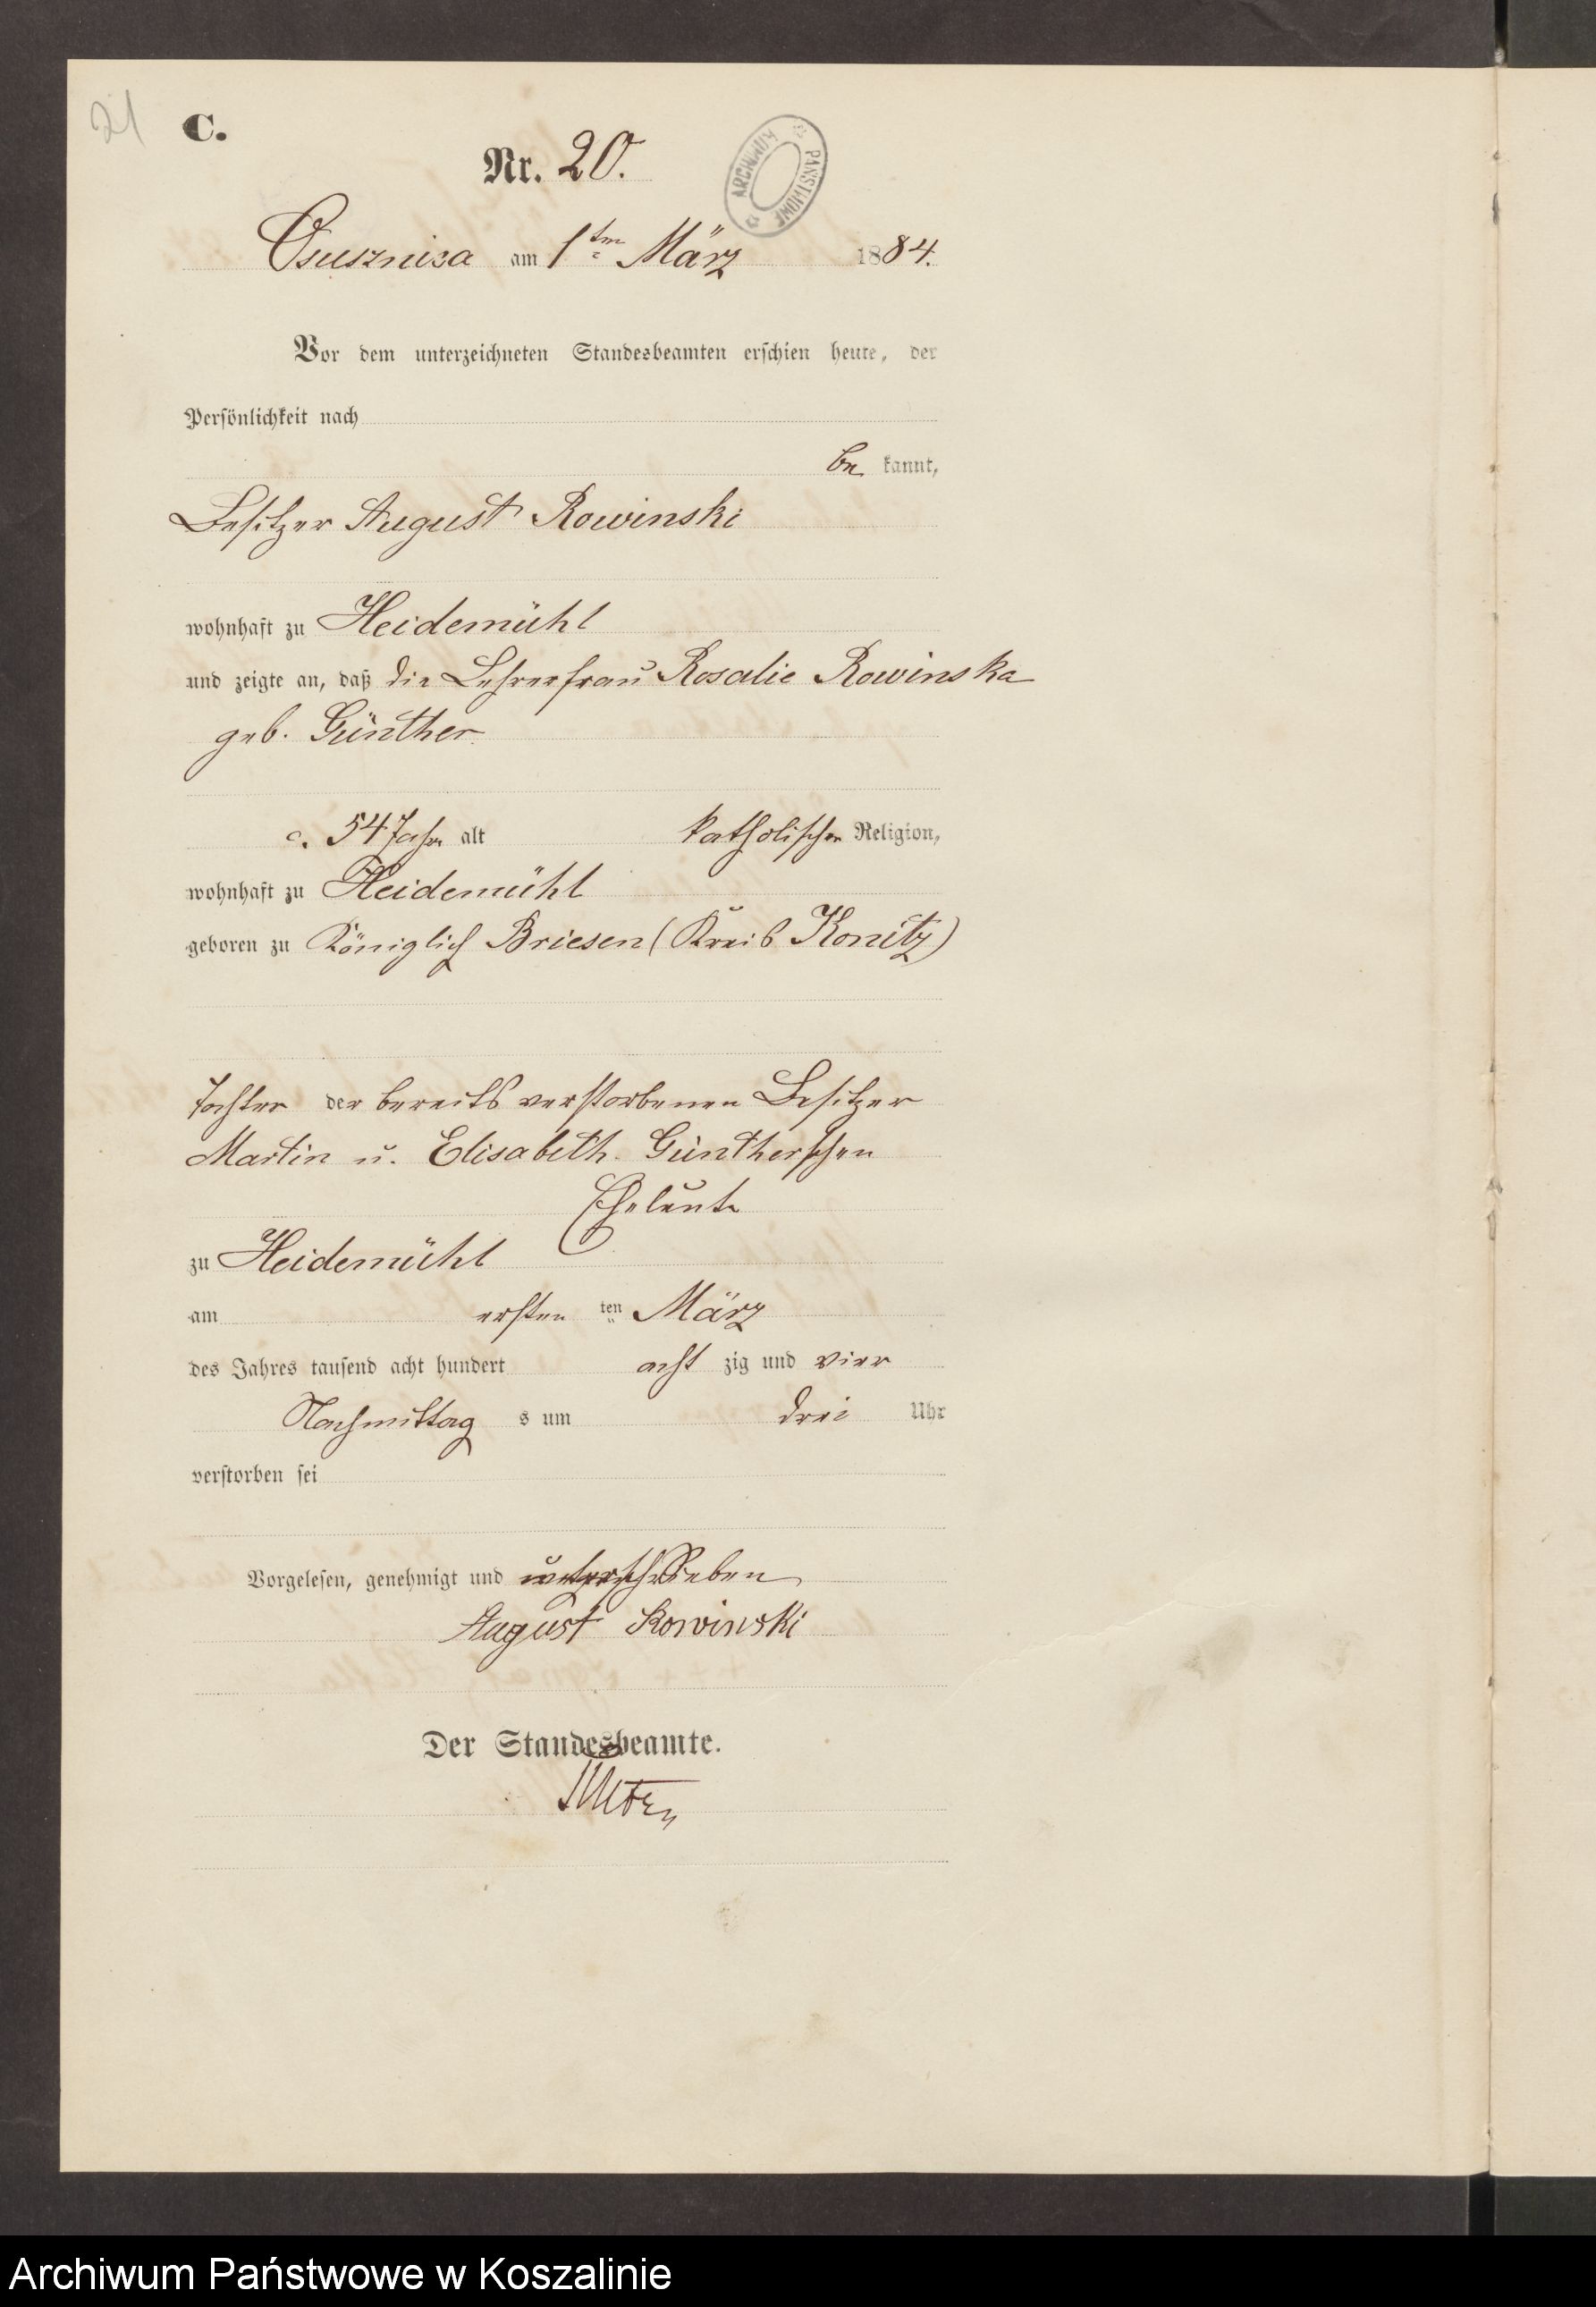 21
C.
Nr. 20.
ARCHIWUM PAŃSTWOWE
Osusznica am 1ten März 1884.
Vor dem unterzeichneten Standesbeamten erschien heute, der
Persönlichkeit nach
be kannt,
Besitzer August Rowinski
wohnhaft zu Heidemühl
und zeigte an, daß die Lehrerfrau Rosalie Rowinska
geb. Günther
c. 54 Jahr alt katholischer Religion,
wohnhaft zu Heidemühl
geboren zu Königlich Briesen (Kreis Konitz)
Tochter der bereits verstorbenen Besitzer
Martin u. Elisabeth Güntherschen
Eheleute
zu Heidemühl
am ersten ten März
des Jahres tausend acht hundert acht zig und vier
Nachmittag s um drei Uhr
verstorben sei
Vorgelesen, genehmigt und unterschrieben
August Rowinski
Der Standesbeamte.
Archiwum Państwowe w Koszalinie